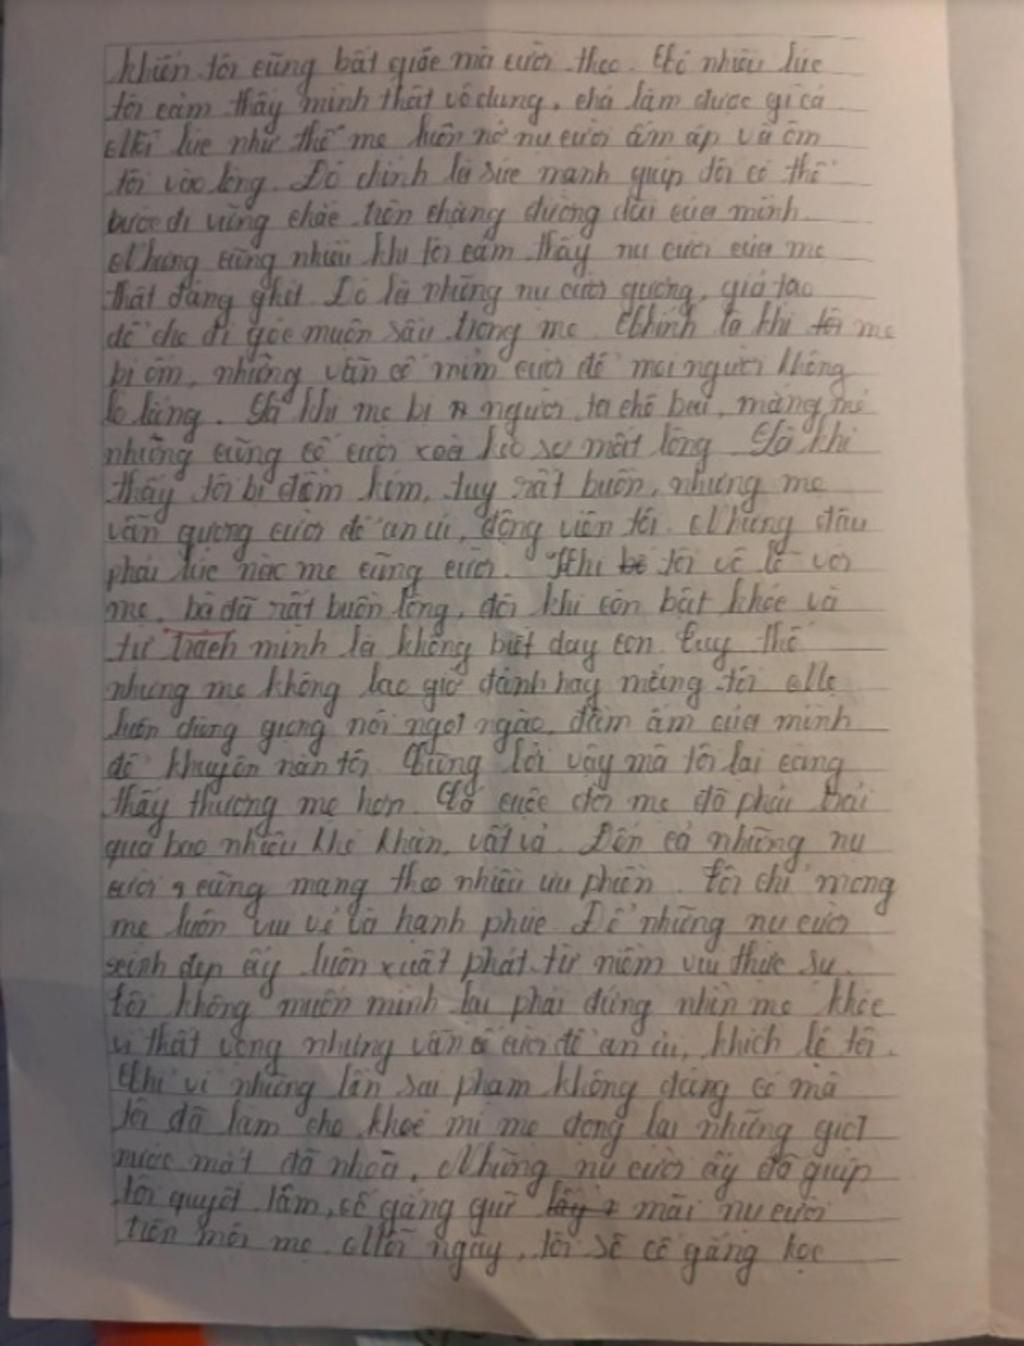 khiến tôi cũng bất giác mà cười theo. Có nhiều lúc
tôi cảm thấy mình thật vô dụng, chả làm được gì cả
Mỗi lúc như thế mẹ luôn nở nụ cười ấm áp và ôm
tôi vào lòng. Đó chính là sức mạnh giúp tôi có thể
bước đi vững chắc trên chặng đường dài của mình.
Nhưng cũng nhiều khi tôi cảm thấy nụ cười của mẹ
thật đáng ghét. Đó là những nụ cười gượng, giả tạo
để che đi góc muộn sầu trong mẹ. Chính là khi tôi mẹ
bị ốm, nhưng vẫn cố mỉm cười để mọi người không
lo lắng. Là khi mẹ bị người ta chê bai, mắng mỏ
nhưng cũng cố cười xoà bỏ sự mất lòng Là khi
thấy tôi bị điểm kém, tuy rất buồn, nhưng mẹ
vẫn gượng cười để an ủi, động viên tôi. Nhưng đâu
phải lúc nào mẹ cũng cười. Khi tôi vô lễ với
mẹ, bà đã rất buồn lòng, đôi khi còn bật khóc và
tự trách mình là không biết dạy con. Tuy thế
nhưng mẹ không bao giờ đánh hay mắng tôi. Mẹ
luôn dùng giọng nói ngọt ngào, đầm ấm của mình
để khuyên răn tôi. Cũng bởi vậy mà tôi lại càng
thấy thương mẹ hơn. Cả cuộc đời mẹ đã phải trải
qua bao nhiêu khó khăn, vất vả. Đến cả những nụ
cười cũng mang theo nhiều ưu phiền. Tôi chỉ mong
mẹ luôn vui vẻ và hạnh phúc. Để những nụ cười
xinh đẹp ấy luôn xuất phát từ niềm vui thực sự.
Tôi không muốn mình lại phải đứng nhìn mẹ khóc
vì thất vọng nhưng vẫn cố cười để an ủi, khích lệ tôi.
Chỉ vì những lần sai phạm không đáng có mà
tôi đã làm cho khoé mi mẹ đọng lại những giọt
nước mắt đã nhoà. Những nụ cười ấy đã giúp
tôi quyết tâm, cố gắng giữ mãi nụ cười
trên môi mẹ. Mỗi ngày, tôi sẽ cố gắng học